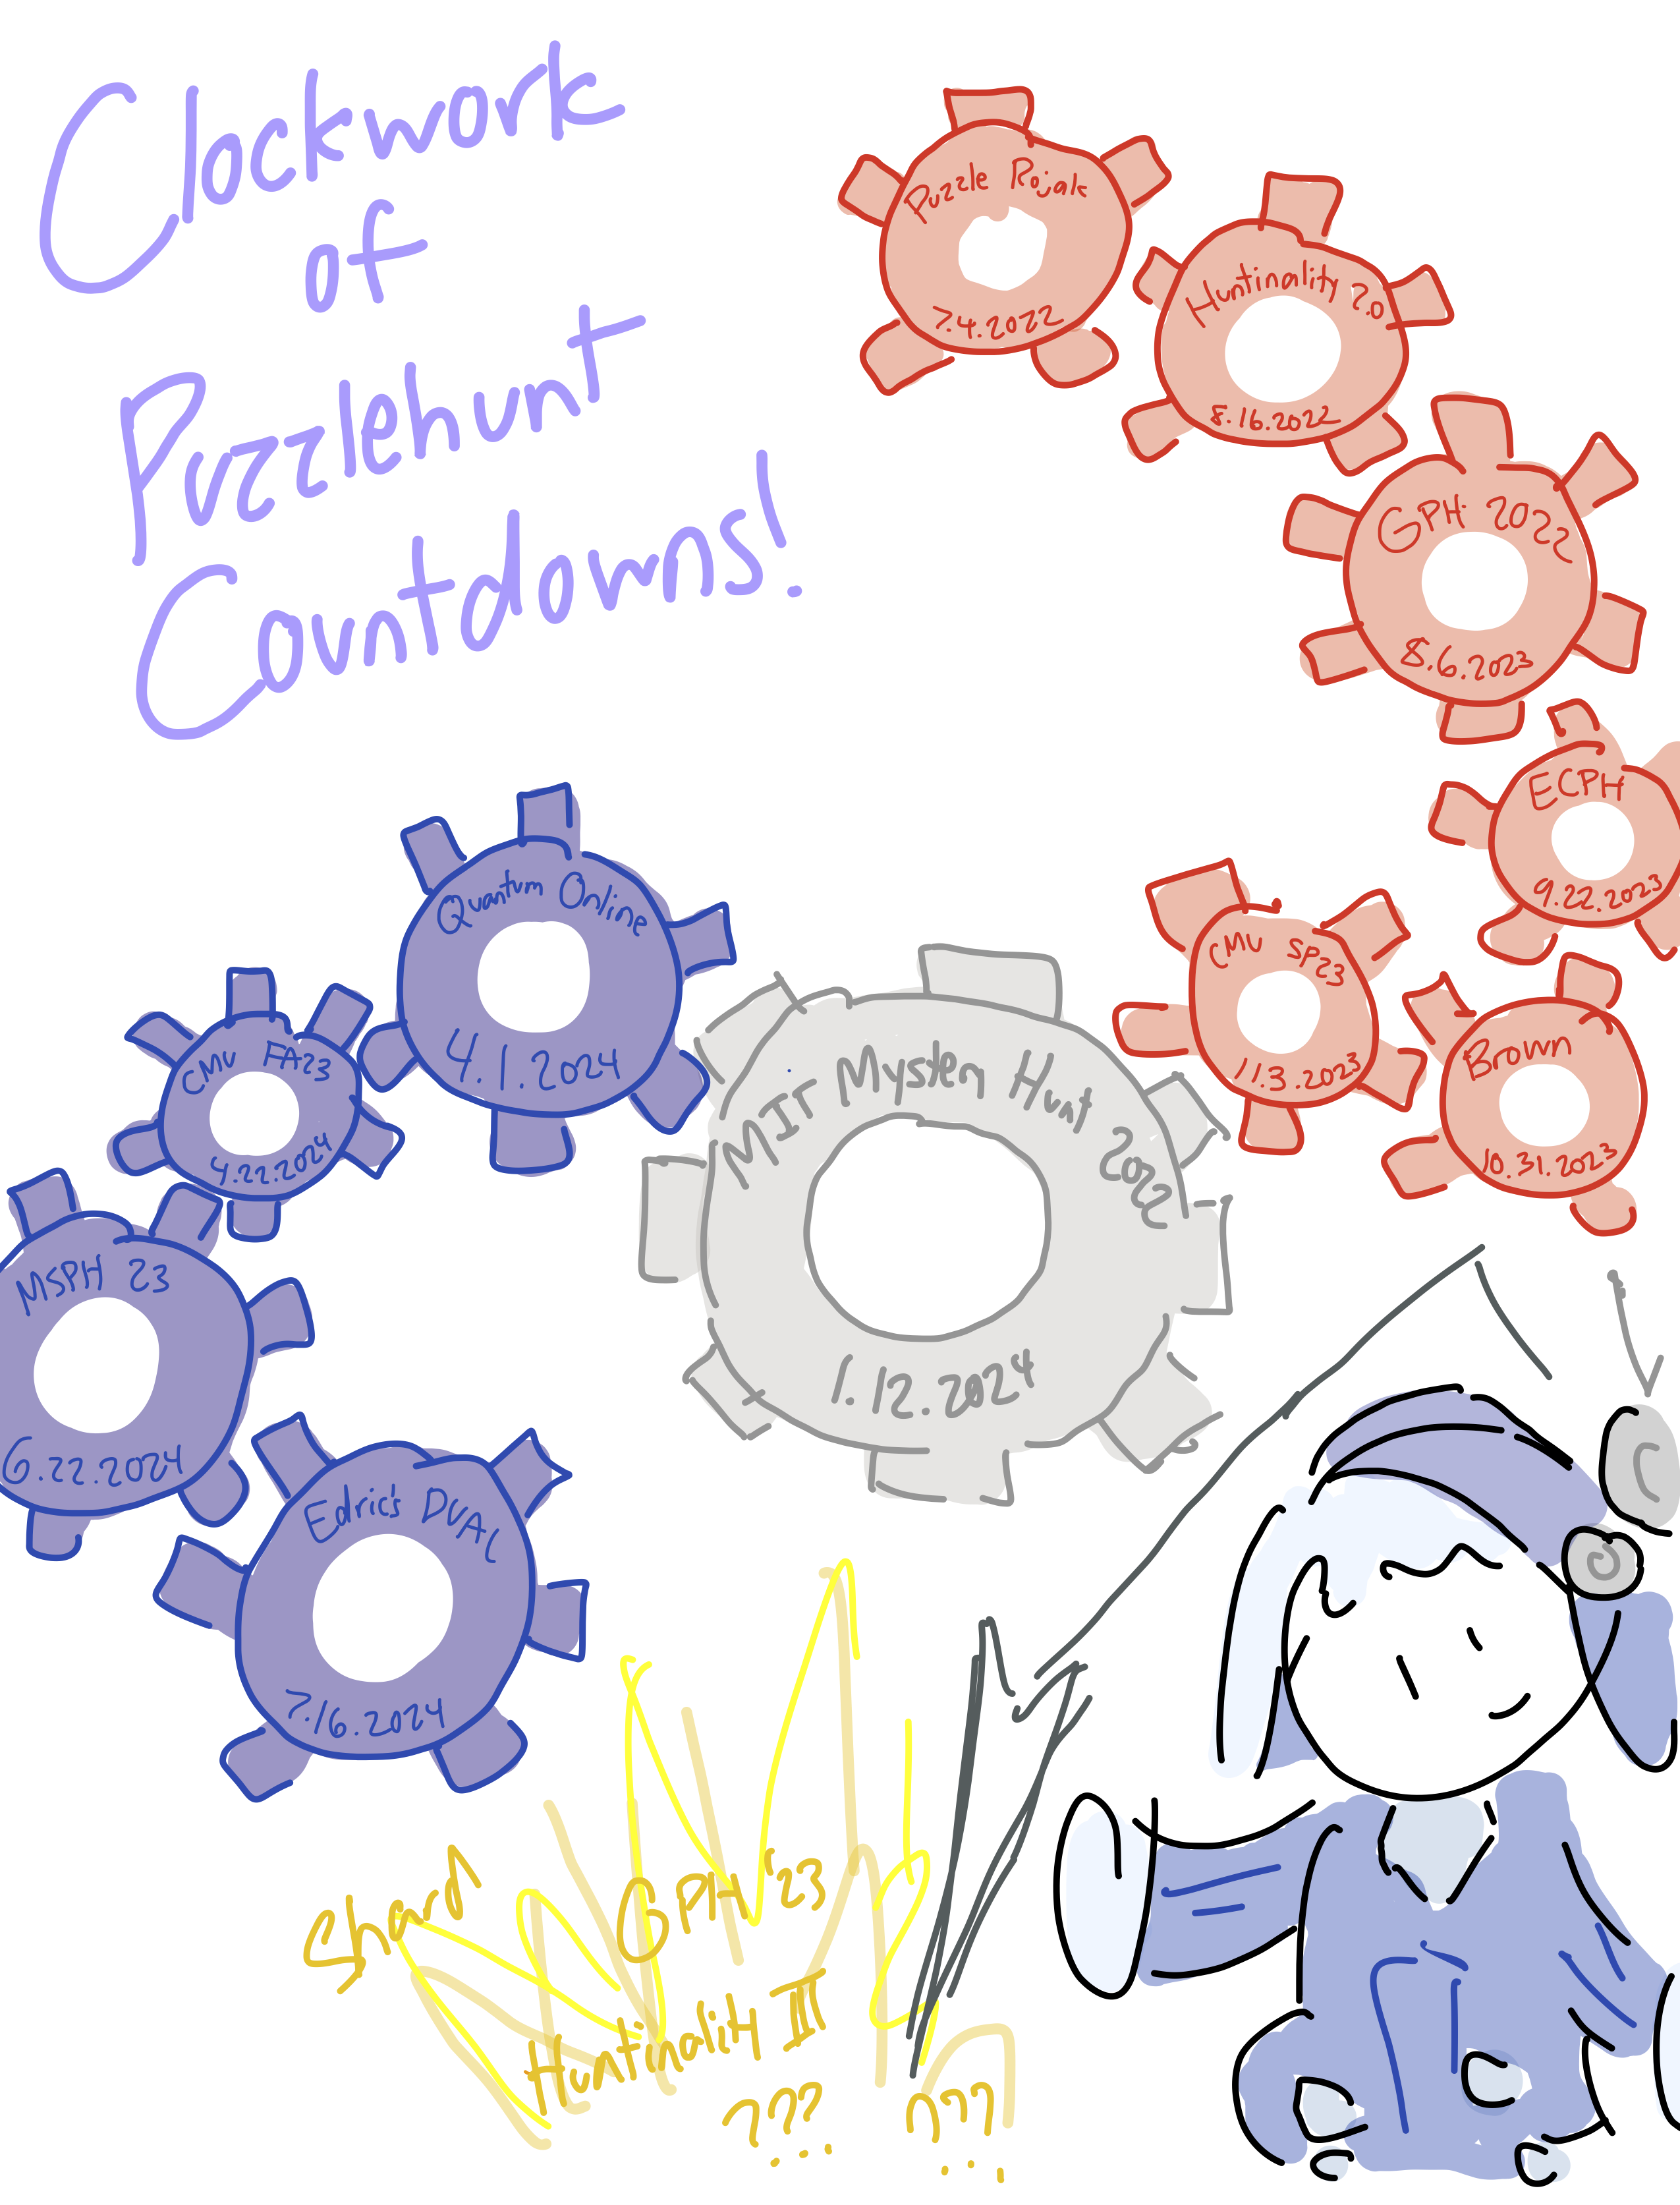 Clockwork
of
Puzzlehunt
Countdowns!
Puzzle Rojale
7.4.2022
Huntinality 2.0
8.16.2022
GPH 2022
8.6.2023
ECPH
9.22.2023
Brown
10.31.2023
CMU SP23
11.3.2023
MIT Mystery Hunt 2023
1.12.2024
Quantum Online
4.1.2024
CMU FA23
4.22.2024
MSPH 23
6.22.2024
Edric's DNAC
7.16.2024
Shard
GPH '23
Huntinality III
???
???